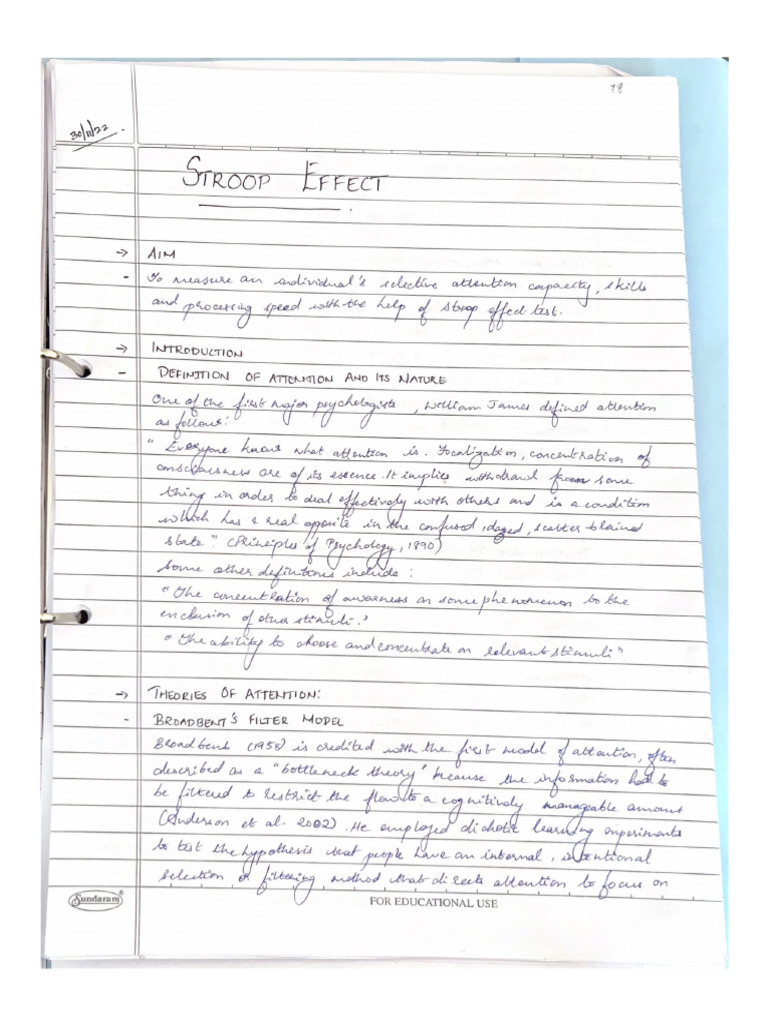 78
30/11/22.
STROOP EFFECT
→ AIM
- To measure an individual's selective attention capacity, skills
and processing speed with the help of stroop effect test.
→ INTRODUCTION
- DEFINITION OF ATTENTION AND ITS NATURE
One of the first major psychologists, William James defined attention
as follows:
"Everyone knows what attention is. Focalization, concentration of
consciousness are of its essence. It implies withdrawl from some
thing in order to deal effectively with others and is a condition
which has a real opposite in the confused, dazed, scatter blained
state." (Principles of Psychology, 1890)
Some other definitions include :
"The concentration of awareness on some phenomenon to the
exclusion of other stimuli."
"The ability to choose and concentrate on relevant stimuli"
→ THEORIES OF ATTENTION:
- BROADBENT'S FILTER MODEL
Broadbent (1958) is credited with the first model of attention, often
described as a "bottleneck theory" because the information had to
be filtered to restrict the flow to a cognitively manageable amount
(Anderson et al. 2002). He employed dichotic learning experiments
to test the hypothesis that people have an internal, intentional
selection or filtering method that directs attention to focus on
Sundaram®
FOR EDUCATIONAL USE